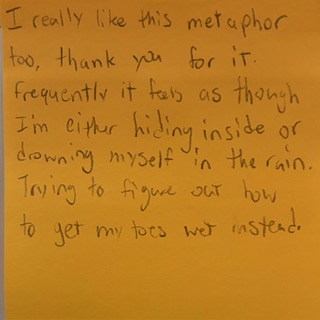 I really like this metaphor
too, thank you for it.
Frequently it feels as though
I'm either hiding inside or
drowning myself in the rain.
Trying to figure out how
to get my toes wet instead.